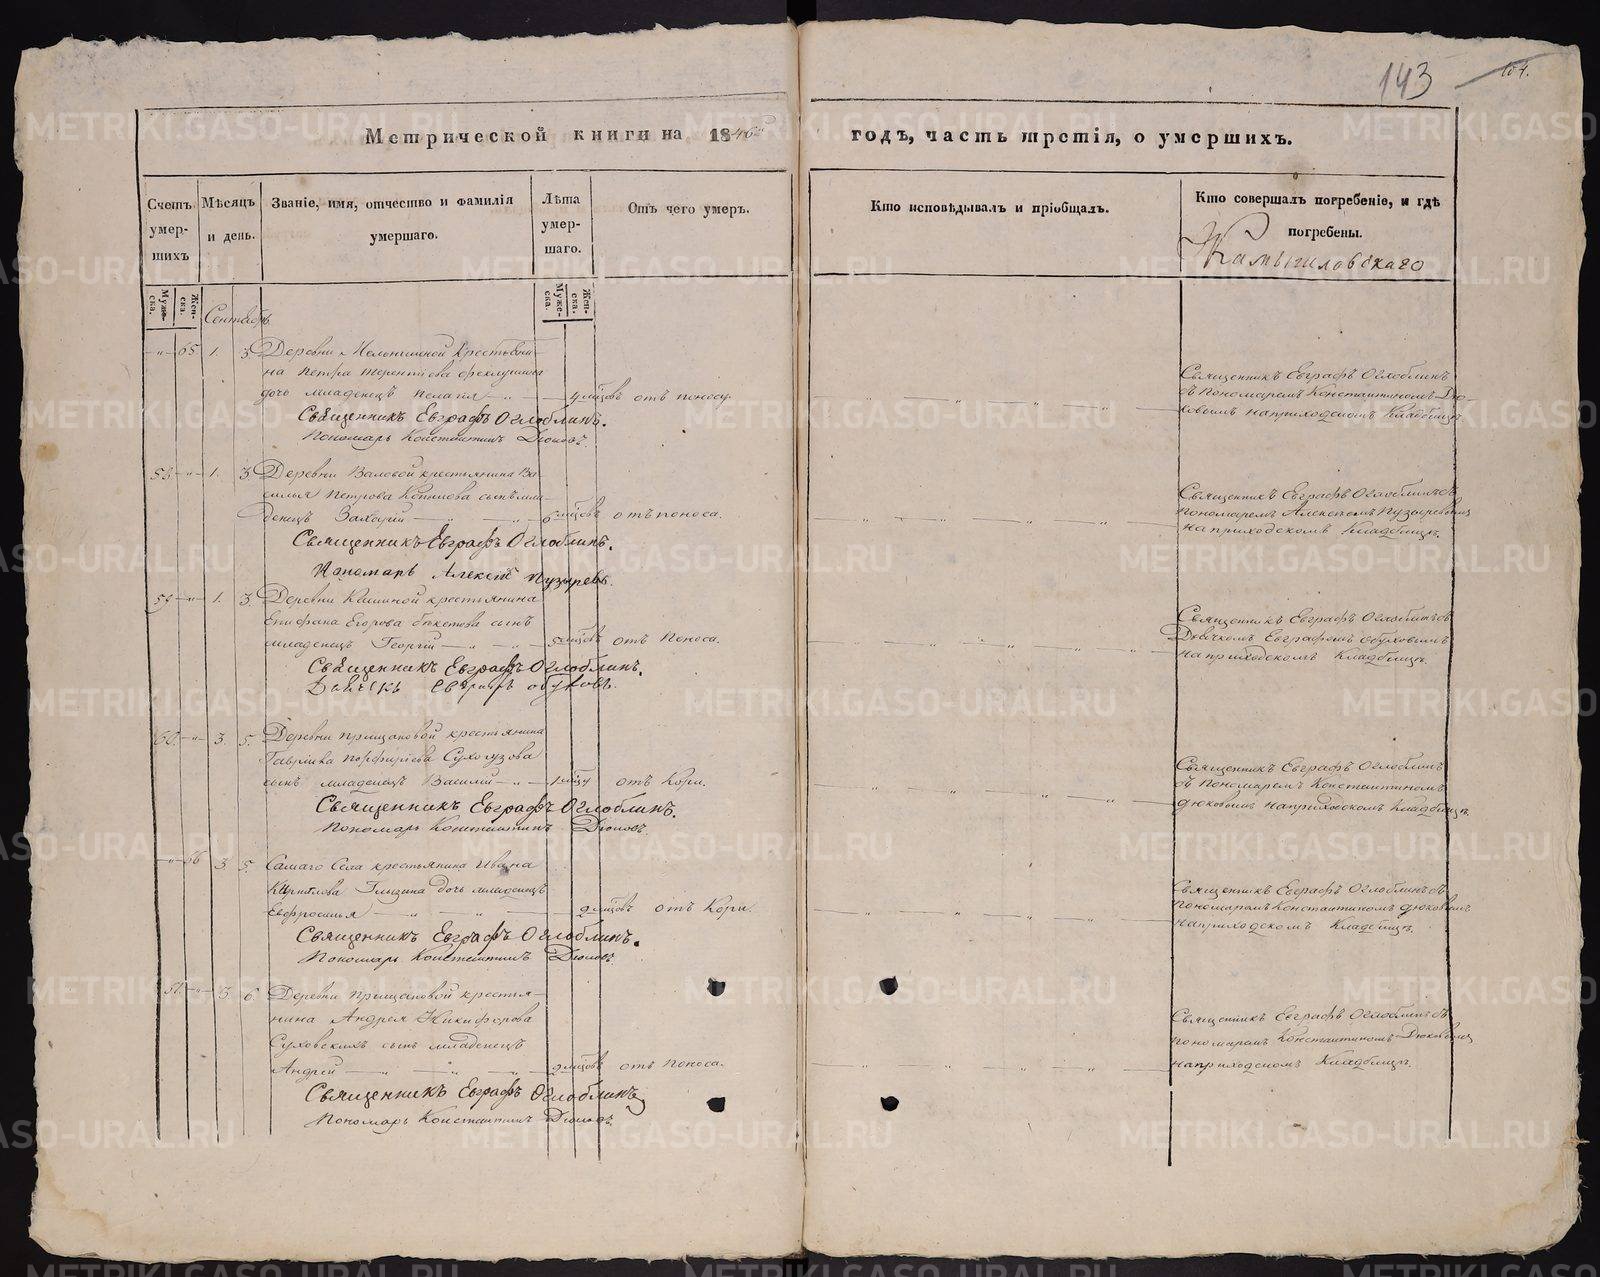 143
104.
Метрической книги на 1846й
годъ, часть третія, о умершихъ.
Счетъ умер- шихъ
Мѣсяцъ и день.
Званіе, имя, отчество и фамилія умершаго.
Лѣта умер- шаго.
Отъ чего умеръ.
Кто исповѣдывалъ и пріобщалъ.
Кто совершалъ погребеніе, и гдѣ погребены.
Камышловскаго
Муже- ска.
Жен- ска.
Муже- ска.
Жен- ска.
Сентябрь
65 1. 3 Деревни крестьяни-
на Петра Терентіева
дочь младенецъ Пелагія 4 мцовъ отъ поносу.
Священникъ Евграфъ Оглоблинъ.
Пономарь Константинъ Дюковъ.
Священникъ Евграфъ Оглоблинъ
съ пономаремъ Константиномъ Дю-
ковымъ на приходскомъ кладбищѣ
58 1. 3 Деревни Валовой крестьянина Ва-
силья Петрова сынъ мла-
денецъ Захарій 6 мцовъ отъ поноса.
Священникъ Евграфъ Оглоблинъ.
Пономарь Алексѣй Пузыревъ.
Священникъ Евграфъ Оглоблинъ съ
пономаремъ Алексѣемъ Пузыревымъ
на приходскомъ кладбищѣ.
59 1. 3. Деревни крестьянина
Епифана Егорова сынъ
младенецъ Георгій 5 мцовъ отъ поноса.
Священникъ Евграфъ Оглоблинъ.
Дьячекъ Евграфъ Обуховъ.
Священникъ Евграфъ Оглоблинъ съ
Дьячкомъ Евграфомъ Обуховымъ
на приходскомъ кладбищѣ.
60. 3. 5. Деревни Прищановой крестьянина
Гавріила Порфирьева Сухогузова
сынъ младенецъ Василій 1 мцу отъ кори.
Священникъ Евграфъ Оглоблинъ.
Пономарь Константинъ Дюковъ.
Священникъ Евграфъ Оглоблинъ
съ пономаремъ Константиномъ
Дюковымъ на приходскомъ кладбищѣ.
66 3. 5. Самаго села крестьянина Ивана
Кирилова дочь младенецъ
Евфросинья 2 мцовъ отъ кори.
Священникъ Евграфъ Оглоблинъ.
Пономарь Константинъ Дюковъ.
Священникъ Евграфъ Оглоблинъ съ
пономаремъ Константиномъ Дюковымъ
на приходскомъ кладбищѣ.
3. 6. Деревни Прищановой крестья-
нина Андрея Никифорова
Суховскихъ сынъ младенецъ
Андрей 2 мцовъ отъ поноса.
Священникъ Евграфъ Оглоблинъ
Пономарь Константинъ Дюковъ.
Священникъ Евграфъ Оглоблинъ съ
пономаремъ Константиномъ Дюковымъ
на приходскомъ кладбищѣ.
METRIKI.GASO-URAL.RU